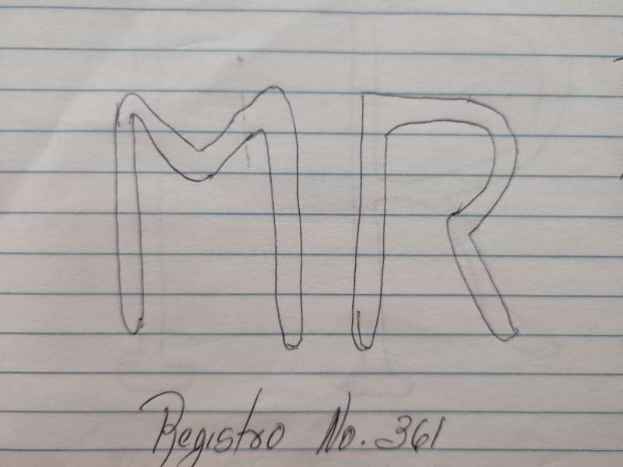 MR
Registro No. 361